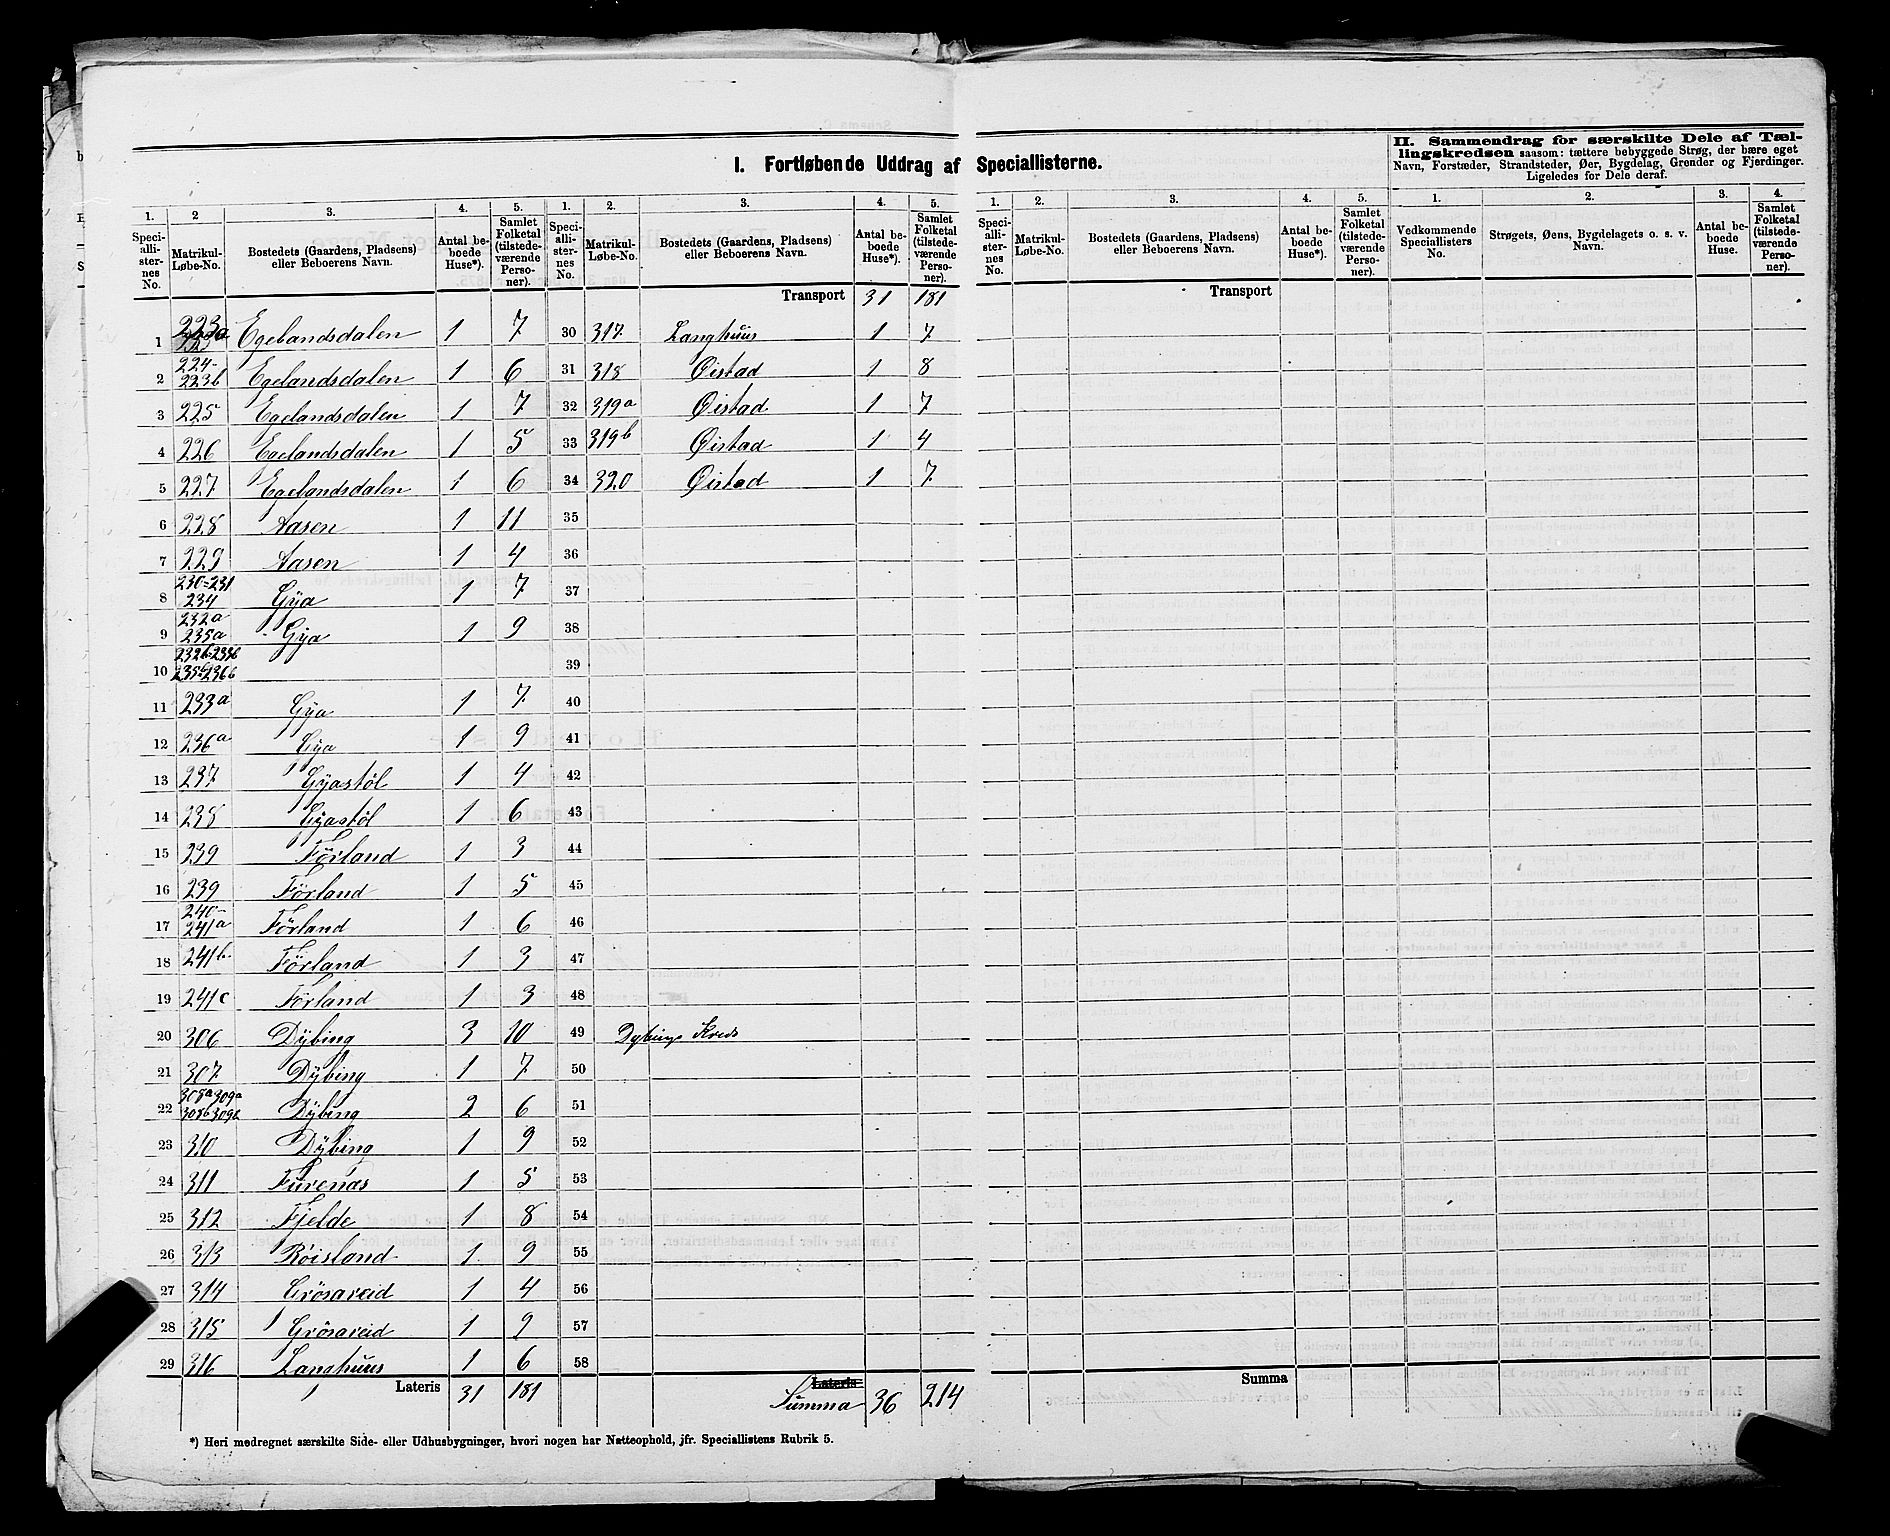 I. Fortløbende Uddrag af Speciallisterne.
II. Sammendrag for særskilte Dele af Tæl-
lingskredsen saasom: tættere bebyggede Strøg, der bære eget
Navn, Forstæder, Strandsteder, Øer, Bygdelag, Grender og Fjerdinger.
Ligeledes for Dele deraf.
1. 2 3. 4. 5. 1. 2. 3. 4. 5. 1. 2. 3. 4. 5. 1. 2. 3. 4.
Speci-alli-ster-nes No. Matrikul-Løbe-No. Bostedets (Gaardens, Pladsens) eller Beboerens Navn. Antal be-boede Huse*). Samlet Folketal (tilstede-værende Perso-ner).
Speci-alli-ster-nes No. Matrikul-Løbe-No. Bostedets (Gaardens, Pladsens) eller Beboerens Navn. Antal be-boede Huse*). Samlet Folketal (tilstede-værende Perso-ner).
Speci-alli-ster-nes No. Matrikul-Løbe-No. Bostedets (Gaardens, Pladsens) eller Beboerens Navn. Antal be-boede Huse*). Samlet Folketal (tilstede-værende Perso-ner).
Vedkommende Speciallisters No. Strøgets, Øens, Bygdelagets o. s. v. Navn. Antal be-boede Huse. Samlet Folketal (tilstede-værende Perso-ner).
Transport 31 181 Transport
1 223a Egelandsdalen 1 7 30 317 Langhuus 1 7
2 224- 223b Egelandsdalen 1 6 31 318 Øistad 1 8
3 225 Egelandsdalen 1 7 32 319a Øistad 1 7
4 226 Egelandsdalen 1 5 33 319b Øistad 1 4
5 227 Egelandsdalen 1 6 34 320 Øistad 1 7
6 228 Aasen 1 11 35
7 229 Aasen 1 4 36
8 230=231 234 Gÿa 1 7 37
9 232a 235a Gÿa 1 9 38
10 232b 233b 235b 236b 39
11 233a Gÿa 1 7 40
12 236a Gÿa 1 9 41
13 237 Gÿastøl 1 4 42
14 238 Gÿastøl 1 6 43
15 239 Förland 1 3 44
16 239 Förland 1 5 45
17 240- 241a Förland 1 6 46
18 241b Förland 1 3 47
19 241c Förland 1 3 48
20 306 Dÿbing 3 10 49 Dybings Kreds
21 307 Dÿbing 1 7 50
22 308a 309a 308b 309b Dÿbing 2 6 51
23 310 Dÿbing 1 9 52
24 311 Furenæs 1 5 53
25 312 Fjelde 1 8 54
26 313 Röisland 1 9 55
27 314 Grösareid 1 4 56
28 315 Grösareid 1 9 57
29 316 Langhuus 1 6 58
Lateris 31 181 Lateris Summa 36 214 Summa
*) Heri medregnet særskilte Side- eller Udhusbygninger, hvori nogen har Natteophold, jfr. Speciallistens Rubrik 5.